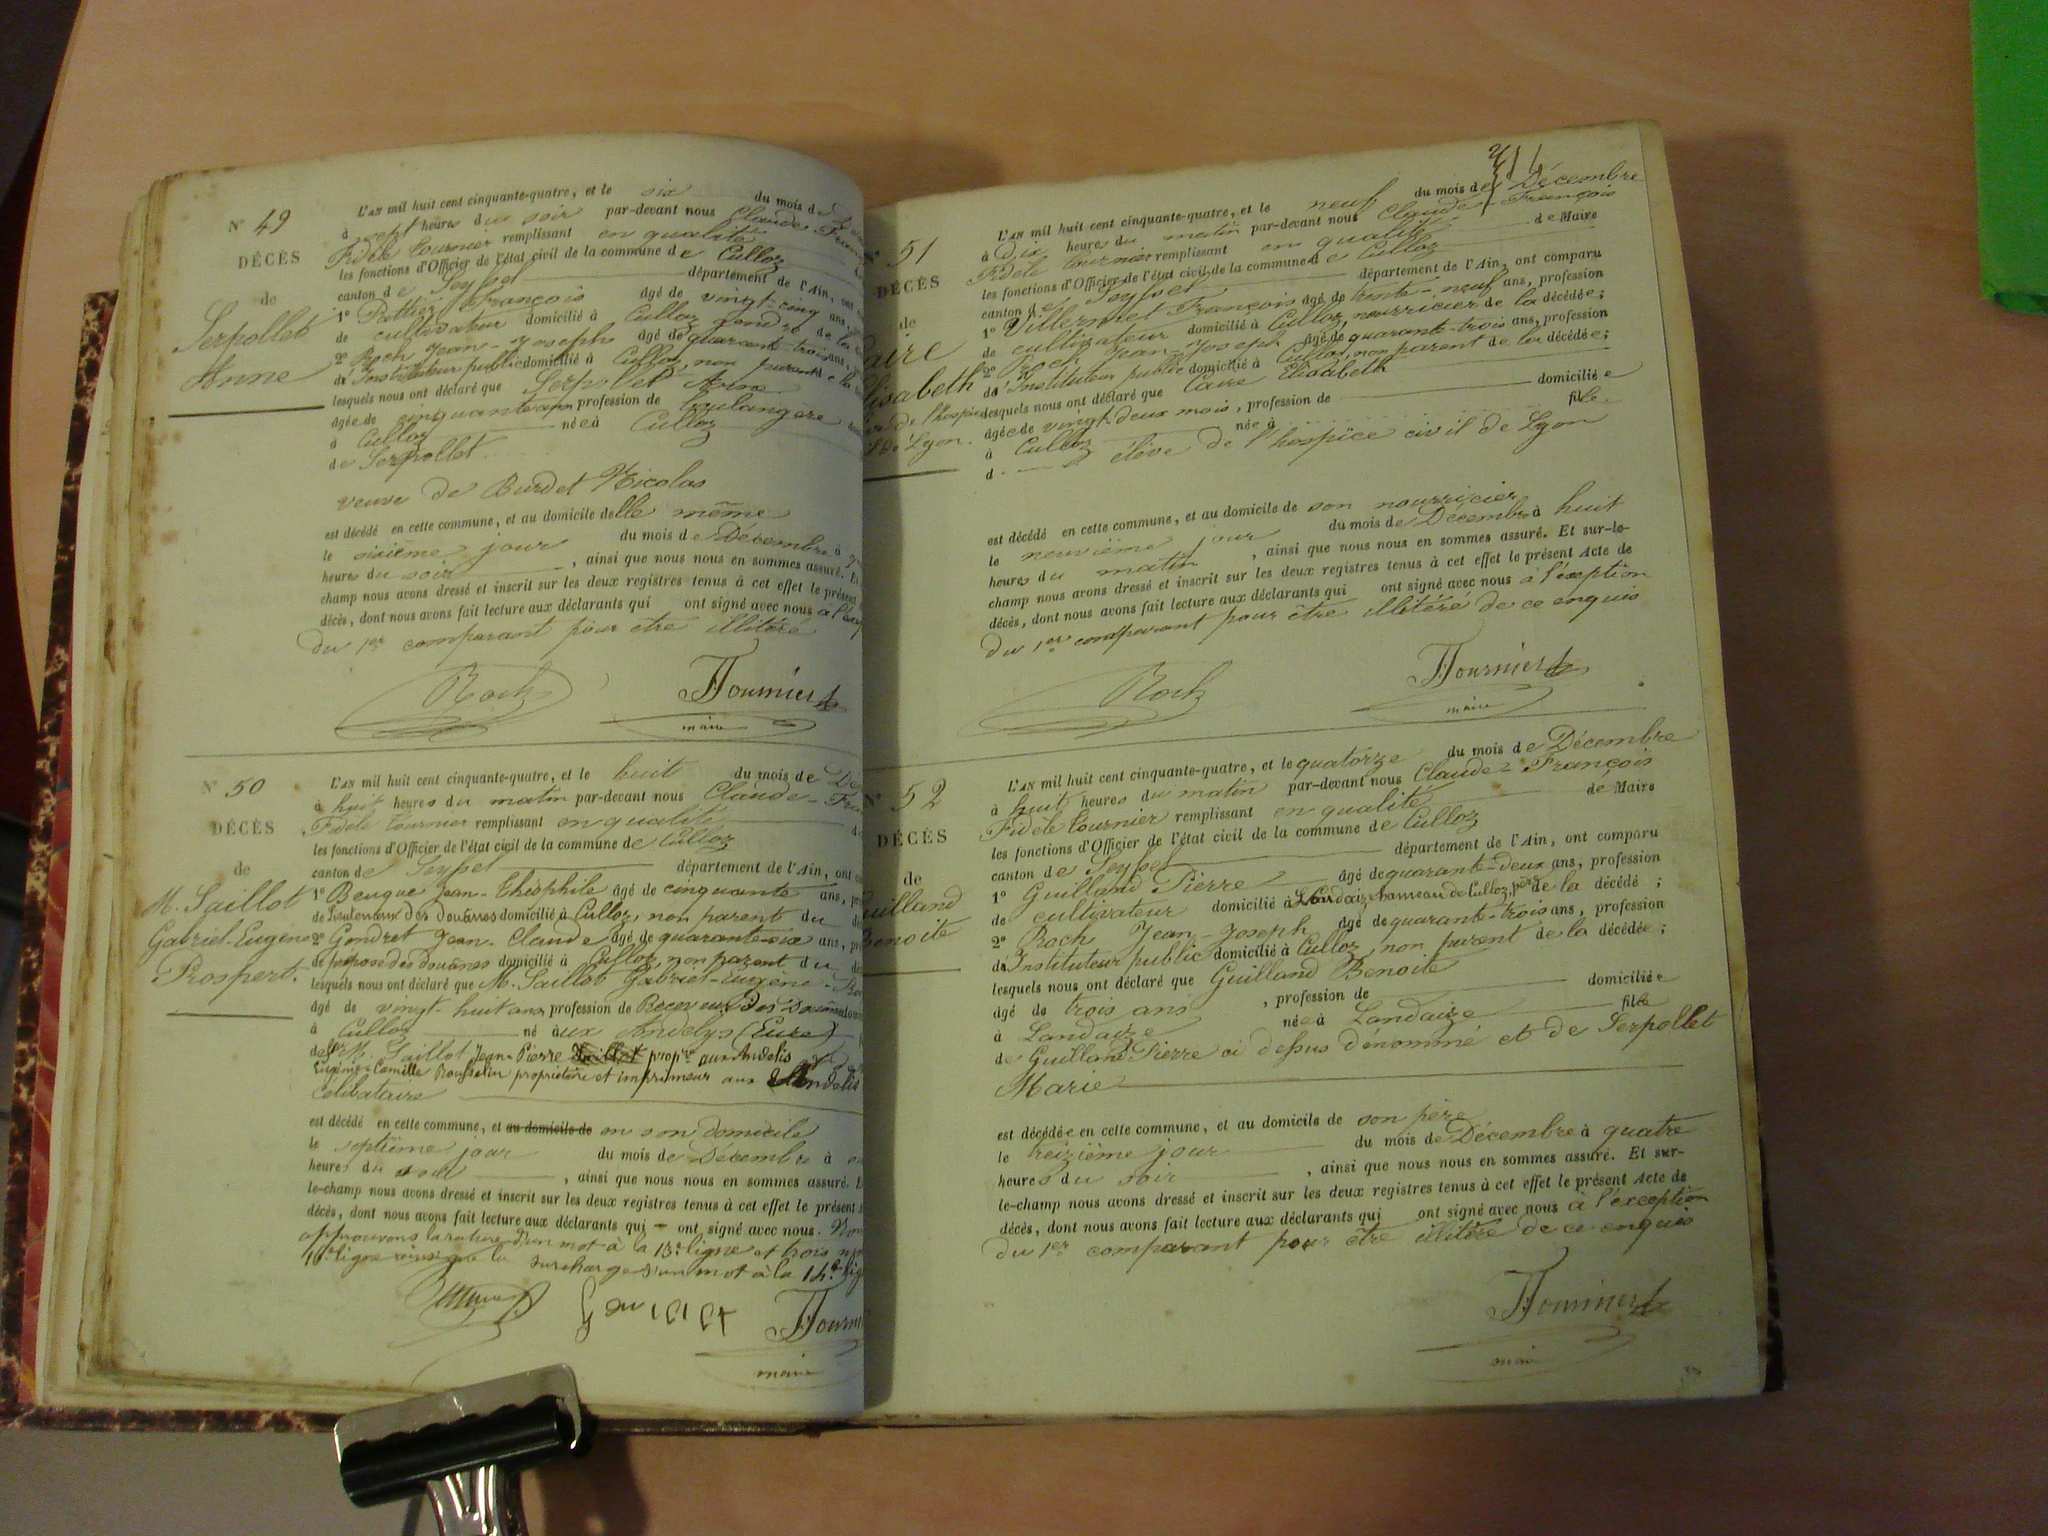 N° 49
DÉCÈS
de
Serpollet
Anne
L'AN mil huit cent cinquante-quatre, et le six du mois de
à sept heures du soir par-devant nous Claude
Fidèle Tournier remplissant en qualité
les fonctions d'Officier de l'état civil de la commune de Culloz
canton de Seyssel département de l'Ain, ont
1° François âgé de vingt-cinq ans,
de cultivateur domicilié à Culloz gendre de la
2° Roch Jean-Joseph âgé de quarante-trois ans,
d'Instituteur public domicilié à Culloz, non parent de la
lesquels nous ont déclaré que Serpollet Anne
âgée de cinquante ans profession de boulangère
à Culloz née à Culloz
de Serpollet
veuve de Burdet Nicolas
est décédé en cette commune, et au domicile d'elle même
le sixième jour du mois de Décembre à
heures du soir, ainsi que nous nous en sommes assuré. Et
champ nous avons dressé et inscrit sur les deux registres tenus à cet effet le présent
décès, dont nous avons fait lecture aux déclarants qui ont signé avec nous à
du 1er comparant pour être illitéré
Roch
Tournier
maire
N° 50
DÉCÈS
de
M. Saillot
Gabriel-Eugène
Prosper.
L'AN mil huit cent cinquante-quatre, et le huit du mois de Dé
à huit heures du matin par-devant nous Claude-
Fidèle Tournier remplissant en qualité
les fonctions d'Officier de l'état civil de la commune de Culloz
canton de Seyssel département de l'Ain, ont
1° Beuque Jean-Théophile âgé de cinquante ans,
de Lieutenant des douanes domicilié à Culloz, non parent du
2° Gondret Jean-Claude âgé de quarante-six ans,
de préposé des douanes domicilié à Culloz, non parent du
lesquels nous ont déclaré que M. Saillot Gabriel-Eugène-
âgé de vingt-huit ans profession de Receveur des Douanes
à Culloz né aux Andelys (Eure)
de M. Saillot Jean-Pierre propre aux Andelis
Eugénie-Camille Rousselin propriétaire et imprimeur aux Andelis
célibataire
est décédé en cette commune, et au domicile de en son domicile
le septième jour du mois de Décembre à
heures du soir, ainsi que nous nous en sommes assuré.
le-champ nous avons dressé et inscrit sur les deux registres tenus à cet effet le présent
décès, dont nous avons fait lecture aux déclarants qui ont signé avec nous.
approuvons la rature d'un mot à la 13e ligne et trois
ligne ainsi que la surcharge d'un mot à la 14e
Tourn
maire
51
DÉCÈS
de
aire
lisabeth
de l'hospice
de Lyon.
L'AN mil huit cent cinquante-quatre, et le neuf du mois de Décembre
à dix heures du matin par-devant nous Claude-François
Fidèle Tournier remplissant en qualité de Maire
les fonctions d'Officier de l'état civil de la commune de Culloz
canton de Seyssel département de l'Ain, ont comparu
1° Villermet François âgé de trente-neuf ans, profession
de cultivateur domicilié à Culloz, nourricier de la décédée;
2° Roch Jean-Joseph âgé de quarante-trois ans, profession
d'Instituteur public domicilié à Culloz, non parent de la décédée;
lesquels nous ont déclaré que Caire Elisabeth
âgée de vingt-deux mois, profession de domiciliée
à Culloz née à fille
d élève de l'hospice civil de Lyon
est décédé en cette commune, et au domicile de son nourricier
le neuvième jour du mois de Décembre à huit
heures du matin, ainsi que nous nous en sommes assuré. Et sur-le-
champ nous avons dressé et inscrit sur les deux registres tenus à cet effet le présent Acte de
décès, dont nous avons fait lecture aux déclarants qui ont signé avec nous à l'exeption
du 1er comparant pour être illitéré de ce enquis
Roch
Tournier
maire
52
DÉCÈS
de
uilland
Benoite
L'AN mil huit cent cinquante-quatre, et le quatorze du mois de Décembre
à huit heures du matin par-devant nous Claude-François
Fidèle Tournier remplissant en qualité de Maire
les fonctions d'Officier de l'état civil de la commune de Culloz
canton de Seyssel département de l'Ain, ont comparu
1° Guilland Pierre âgé de quarante-deux ans, profession
de cultivateur domicilié à Landaize hameau de Culloz, père de la décédé ;
2° Roch Jean-Joseph âgé de quarante-trois ans, profession
d'Instituteur public domicilié à Culloz, non parent de la décédée ;
lesquels nous ont déclaré que Guilland Benoite
âgé de trois ans, profession de domiciliée
à Landaize née à Landaize fille
de Guilland Pierre ci dessus dénommé et de Serpollet
Marie
est décédée en cette commune, et au domicile de son père
le treizième jour du mois de Décembre à quatre
heures du soir, ainsi que nous nous en sommes assuré. Et sur-
le-champ nous avons dressé et inscrit sur les deux registres tenus à cet effet le présent Acte de
décès, dont nous avons fait lecture aux déclarants qui ont signé avec nous à l'exception
du 1er comparant pour être illitéré de ce enquis
Tournier
maire